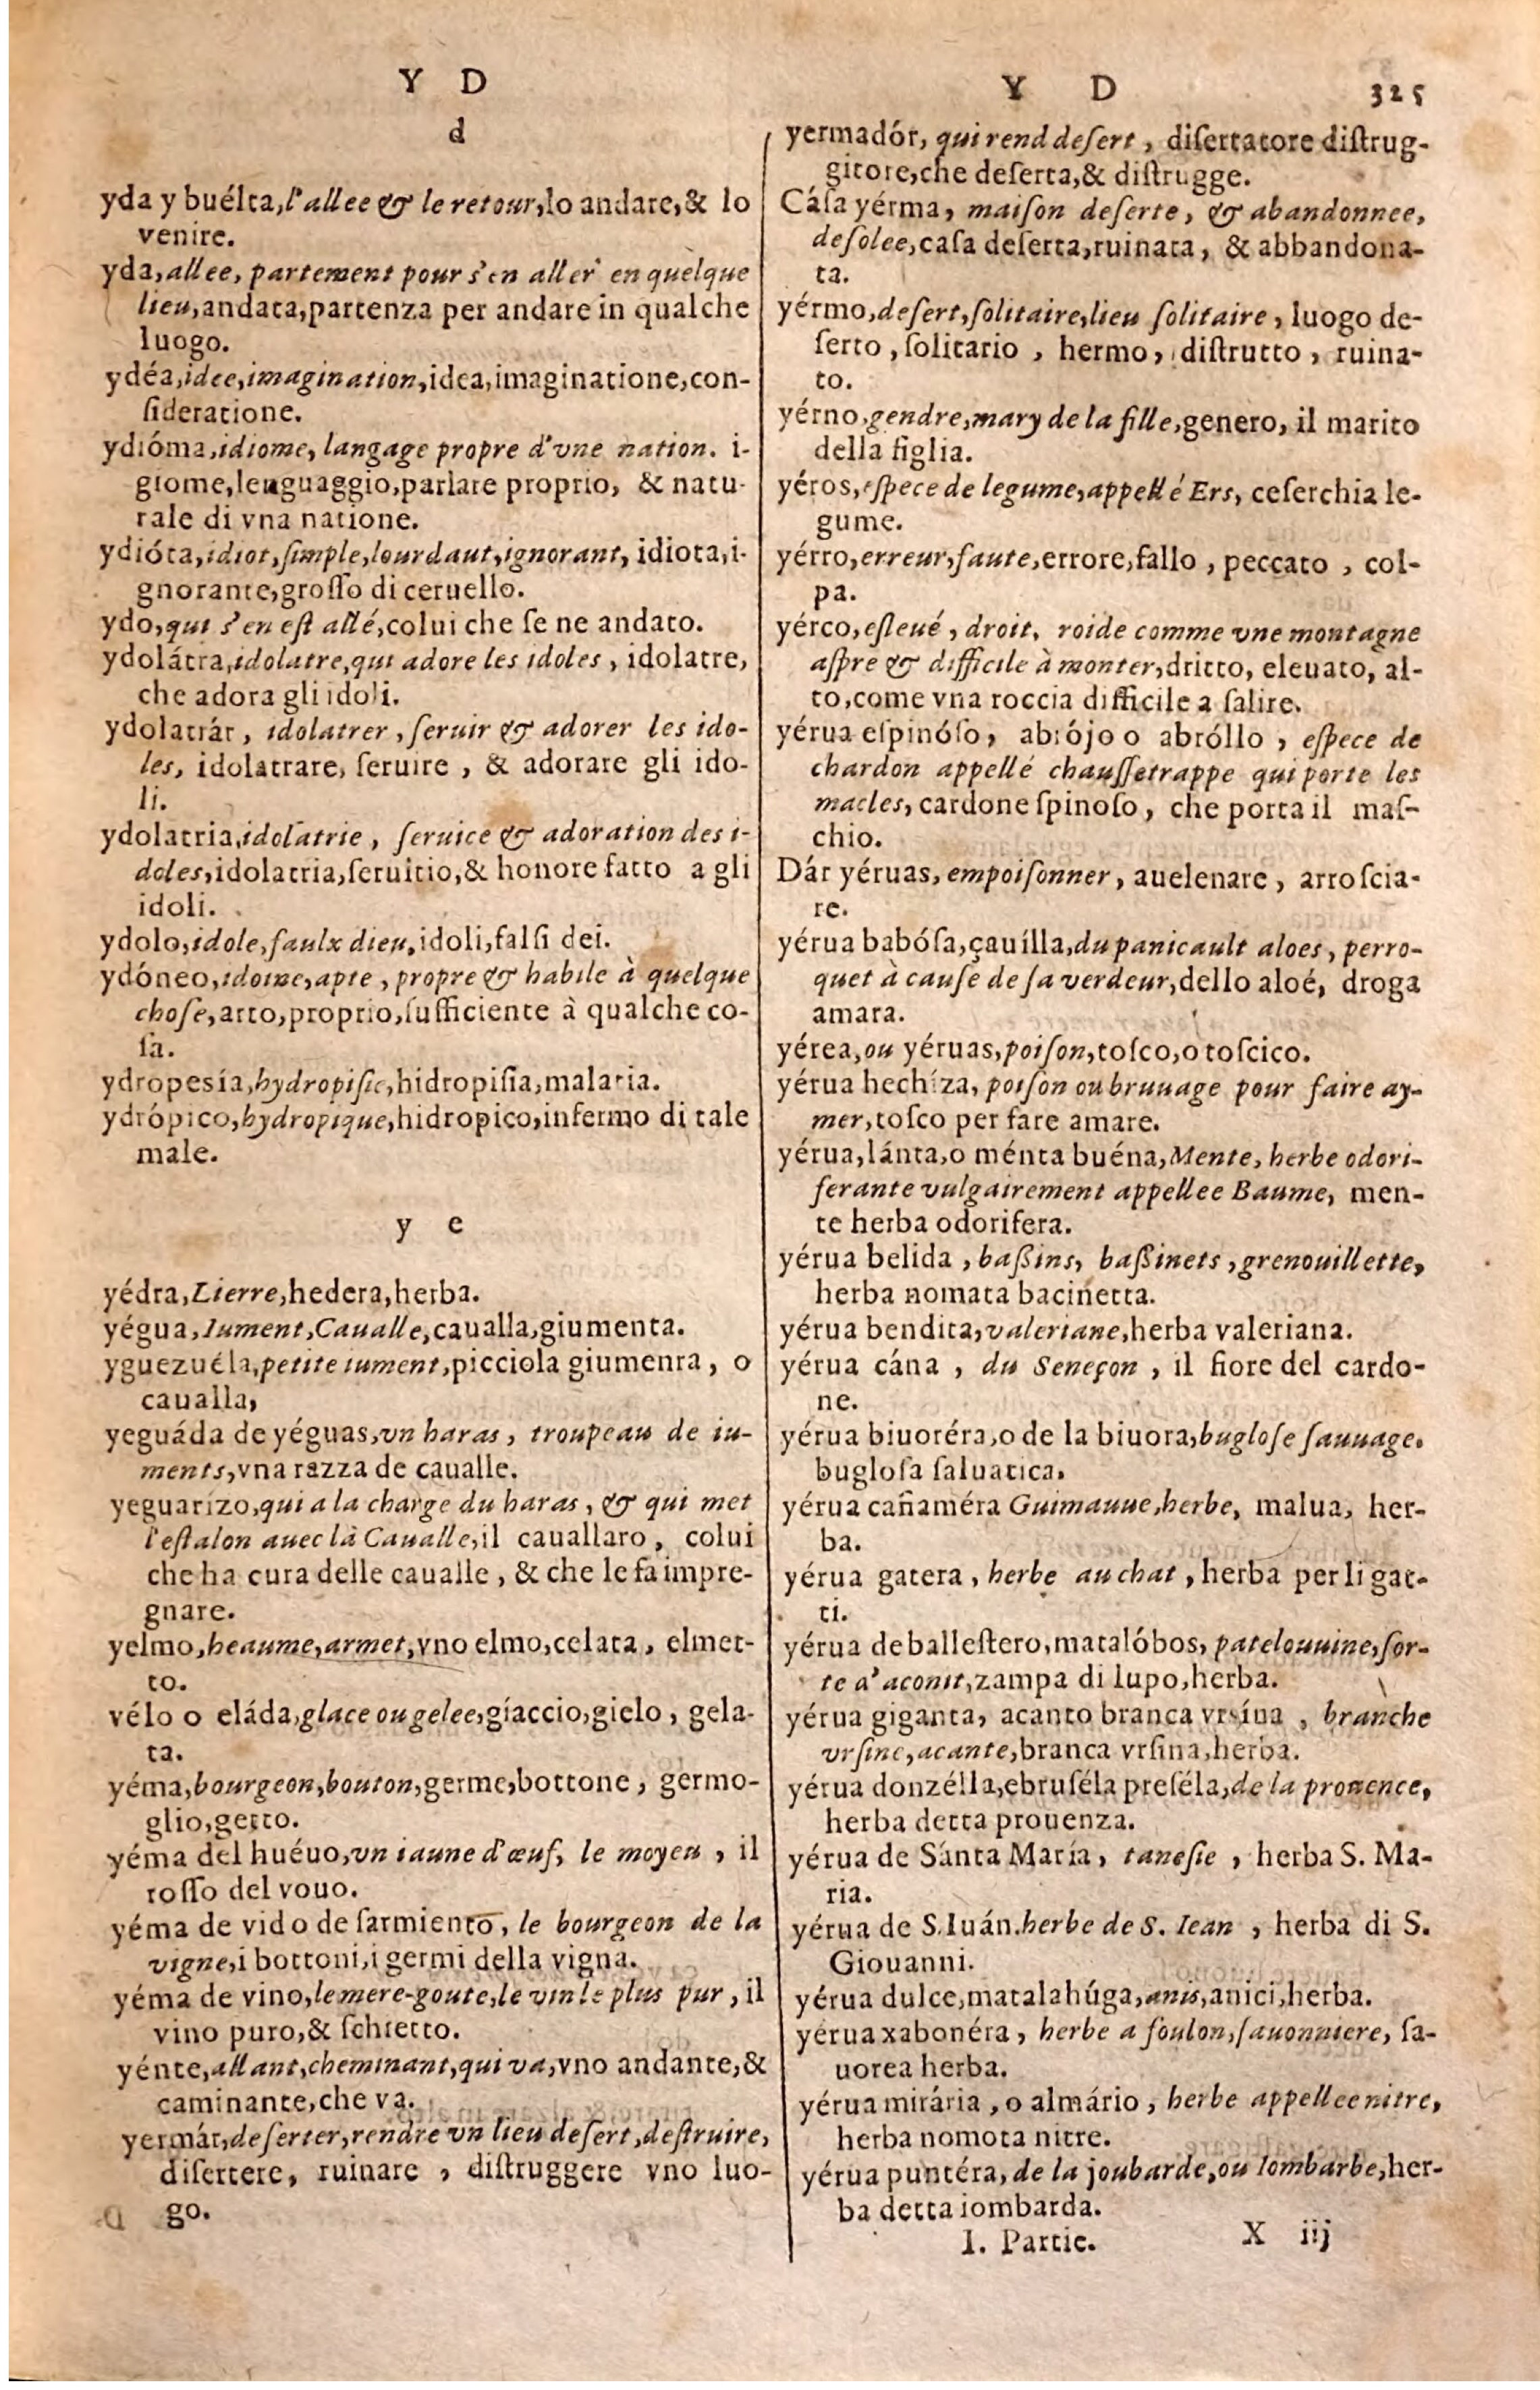 Y D
d
yda y buélta, l'allee & le retour, lo andare, & lo
venire.
yda, allee, partement pour s'en aller en quelque
lieu, andata, partenza per andare in qualche
luogo.
ydéa, idee, imagination, idea, imaginatione, con-
ſideratione.
ydióma, idiome, langage propre d'vne nation. i-
giome, lenguaggio, parlare proprio, & natu-
rale di vna natione.
ydióta, idiot, ſimple, lourdaut, ignorant, idiota, i-
gnorante, groſſo di ceruello.
ydo, qui s'en eſt allé, colui che ſe ne andato.
ydolátra, idolatre, qui adore les idoles, idolatre,
che adora gli idoli.
ydolatrár, idolatrer, ſeruir & adorer les ido-
les, idolatrare, ſeruire, & adorare gli ido-
li.
ydolatria, idolatrie, ſeruice & adoration des i-
doles, idolatria, ſeruitio, & honore fatto a gli
idoli.
ydolo, idole, faulx dieu, idoli, falſi dei.
ydóneo, idoine, apte, propre & habile à quelque
choſe, atto, proprio, ſufficiente à qualche co-
ſa.
ydropesía, hydropiſie, hidropiſia, malatia.
ydrópico, hydropique, hidropico, infermo di tale
male.
y e
yédra, Lierre, hedera, herba.
yégua, Iument, Caualle, caualla, giumenta.
yguezuéla, petite iument, picciola giumenra, o
caualla,
yeguáda de yéguas, vn haras, troupeau de iu-
ments, vna razza de caualle.
yeguarízo, qui a la charge du haras, & qui met
l'eſtalon auec là Caualle, il cauallaro, colui
che ha cura delle caualle, & che le fa impre-
gnare.
yelmo, heaume, armet, vno elmo, celata, elmet-
to.
yélo o eláda, glace ou gelee, gíaccio, gielo, gela-
ta.
yéma, bourgeon, bouton, germe, bottone, germo-
glio, getto.
yéma del huéuo, vn iaune d'œuf, le moyeu, il
roſſo del vouo.
yéma de vido de ſarmiento, le bourgeon de la
vigne, i bottoni, i germi della vigna.
yéma de vino, le mere-goute, le vin le plus pur, il
vino puro, & ſchietto.
yénte, allant, cheminant, qui va, vno andante, &
caminante, che va.
yermár, deſerter, rendre vn lieu deſert, deſtruire,
diſertere, ruinare, diſtruggere vno luo-
go.
Y D 325
yermadór, qui rend deſert, diſertatore diſtrug-
gitore, che deſerta, & diſtrugge.
Cáſa yérma, maiſon deſerte, & abandonnee,
deſolee, caſa deſerta, ruinata, & abbandona-
ta.
yérmo, deſert, ſolitaire, lieu ſolitaire, luogo de-
ſerto, ſolitario, hermo, diſtrutto, ruina-
to.
yérno, gendre, mary de la fille, genero, il marito
della figlia.
yéros, eſpece de legume, appellé Ers, ceſerchia le-
gume.
yérro, erreur, faute, errore, fallo, peccato, col-
pa.
yérco, eſleué, droit, roide comme vne montagne
aſpre & difficile à monter, dritto, eleuato, al-
to, come vna roccia difficile a ſalire.
yérua eſpinóſo, abrójo o abróllo, eſpece de
chardon appellé chauſſetrappe qui porte les
macles, cardone ſpinoſo, che porta il maſ-
chio.
Dár yéruas, empoiſonner, auelenare, arroſcia-
re.
yérua babóſa, çauílla, du panicault aloes, perro-
quet à cauſe de ſa verdeur, dello aloé, droga
amara.
yérea, ou yéruas, poiſon, toſco, o toſcico.
yérua hechíza, poiſon ou bruuage pour faire ay-
mer, toſco per fare amare.
yérua, lánta, o ménta buéna, Mente, herbe odori-
ferante vulgairement appellee Baume, men-
te herba odorifera.
yérua belida, baßins, baßinets, grenouillette,
herba nomata bacinetta.
yérua bendita, valeriane, herba valeriana.
yérua cána, du Seneçon, il fiore del cardo-
ne.
yérua biuoréra, o de la biuora, bugloſe ſauuage.
bugloſa ſaluatica.
yérua cañaméra Guimauue, herbe, malua, her-
ba.
yérua gatera, herbe au chat, herba per li gat-
ti.
yérua deballeſtero, matalóbos, patelouuine, ſor-
te d'aconit, zampa di lupo, herba.
yérua giganta, acanto branca vrsína, branche
vrſine, acante, branca vrſina, herba.
yérua donzélla, ebruſéla preſéla, de la prouence,
herba detta prouenza.
yérua de Sánta María, taneſie, herba S. Ma-
ria.
yérua de S. Iuán. herbe de S. Iean, herba di S.
Giouanni.
yérua dulce, matalahúga, anis, anici, herba.
yérua xabonéra, herbe a foulon, ſauonniere, ſa-
uorea herba.
yérua mirária, o almário, herbe appellee nitre,
herba nomota nitre.
yérua puntéra, de la joubarde, ou Iombarbe, her-
ba detta iombarda.
I. Partie. X iij